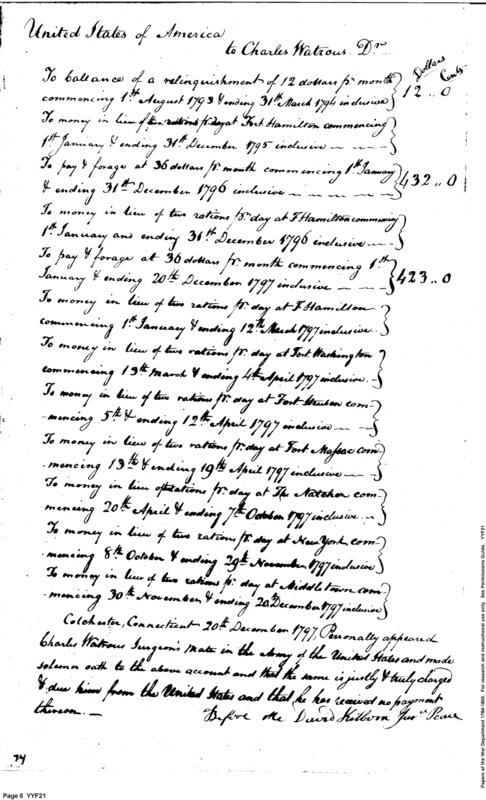 United States of America
to Charles Watrous Dr
Dollars Cents
To ballance of a relinquishment of 12 dollars pr month
commencing 1st August 1793 & ending 31st March 1794 inclusive } 12 .. 0
To money in lieu of two rations pr day at Fort Hamilton commencing
1st January & ending 31st December 1795 inclusive
To pay & forage at 36 dollars pr month commencing 1st January
& ending 31st December 1796 inclusive } 432 .. 0
To money in lieu of two rations pr day at F Hamilton commencing
1st January and ending 31st December 1796 inclusive
To pay & forage at 36 dollars pr month commencing 1st
January & ending 20th December 1797 inclusive } 423 .. 0
To money in lieu of two rations pr day at F Hamilton
commencing 1st January & ending 12th March 1797 inclusive
To money in lieu of two rations pr day at Fort Washington
commencing 13th March & ending 4th April 1797 inclusive
To money in lieu of two rations pr day at Fort Steuben com-
mencing 5th & ending 12th April 1797 inclusive
To money in lieu of two rations pr day at Fort Massac com-
mencing 13th & ending 19th April 1797 inclusive
To money in lieu of rations pr day at The Natchez com-
mencing 20th April & ending 7th October 1797 inclusive
To money in lieu of two rations pr day at New York com-
mencing 8th October & ending 29th November 1797 inclusive
To money in lieu of two rations pr day at Middletown com-
-mencing 30th November & ending 20th December 1797 inclusive
Colchester, Connecticut 20th December 1797. Personally appeared
Charles Watrous Surgeon's Mate in the Army of the United States and made
solemn oath to the above account and that the same is justly & truly charged
& due him from the United States and that he has received no payment
thereon.
Before Me David Kilborn Jus: Peace
74
Page 6 YYF21
Papers of the War Department 1784-1800. For research and instructional use only. See Permissions Guide. YYF21